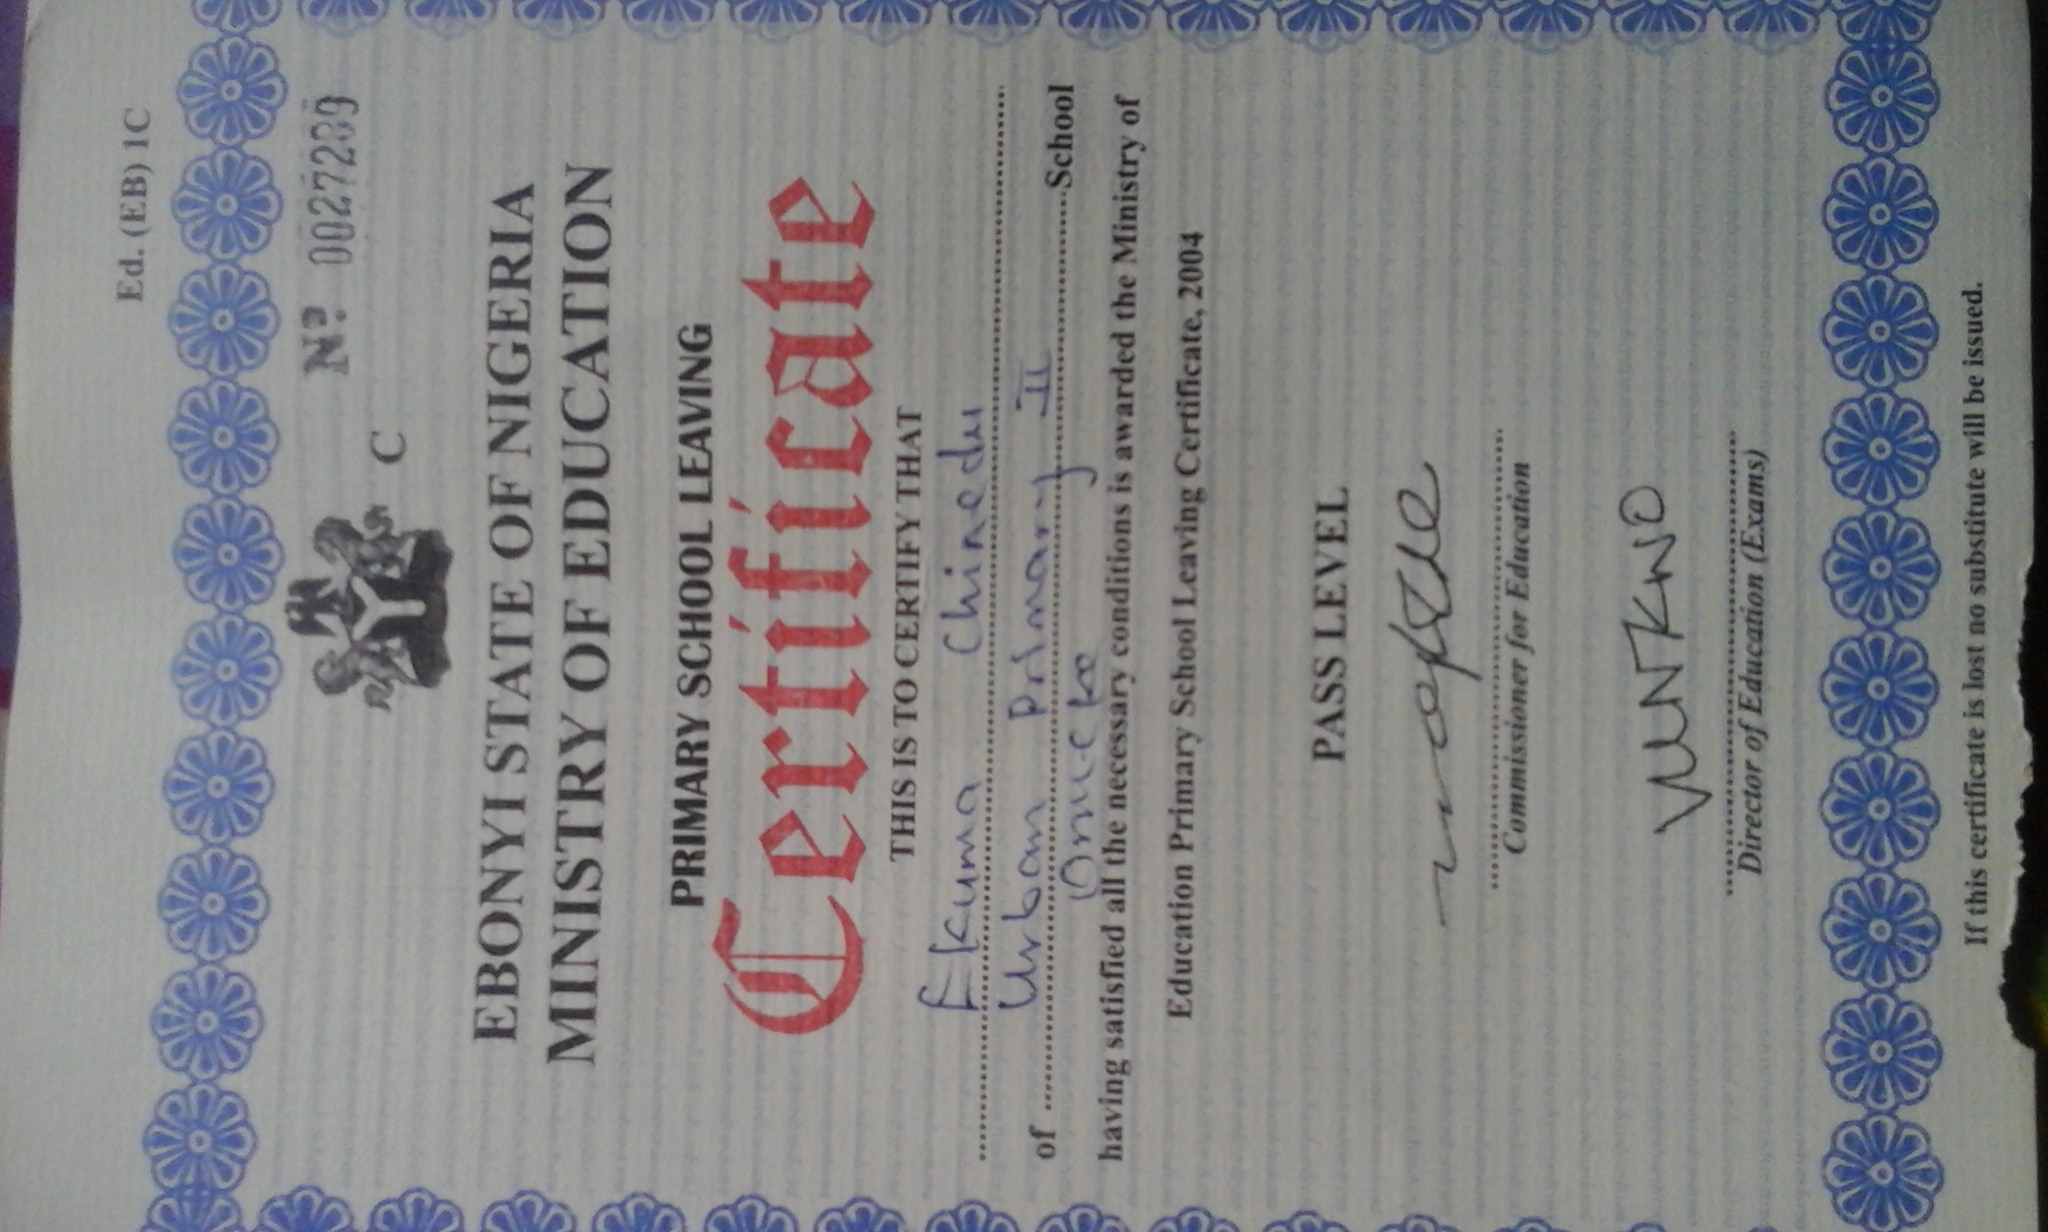 Ed. (EB) 1C
Nº
C
EBONYI STATE OF NIGERIA
MINISTRY OF EDUCATION
PRIMARY SCHOOL LEAVING
Certificate
THIS IS TO CERTIFY THAT
Ekuma Chinedu
of Urban Primary II School
having satisfied all the necessary conditions is awarded the Ministry of
Education Primary School Leaving Certificate, 2004
PASS LEVEL
Commissioner for Education
Director of Education (Exams)
If this certificate is lost no substitute will be issued.